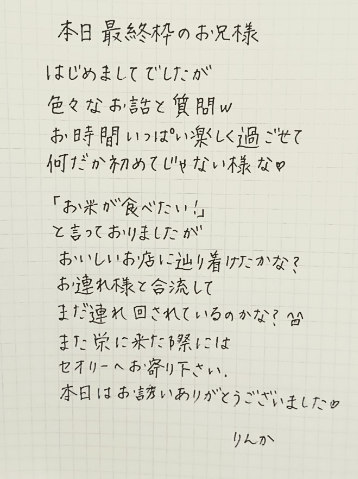 本日最終枠のお兄様
はじめましてでしたが
色々なお話と質問w
お時間いっぱい楽しく過ごせて
何だか初めてじゃない様な♡
「お米が食べたい!」
と言っておりましたが
おいしいお店に辿り着けたかな?
お連れ様と合流して
まだ連れ回されているのかな? ^^
また栄に来た際には
セオリーへお寄り下さい.
本日はお誘いありがとうございました♡
りんか